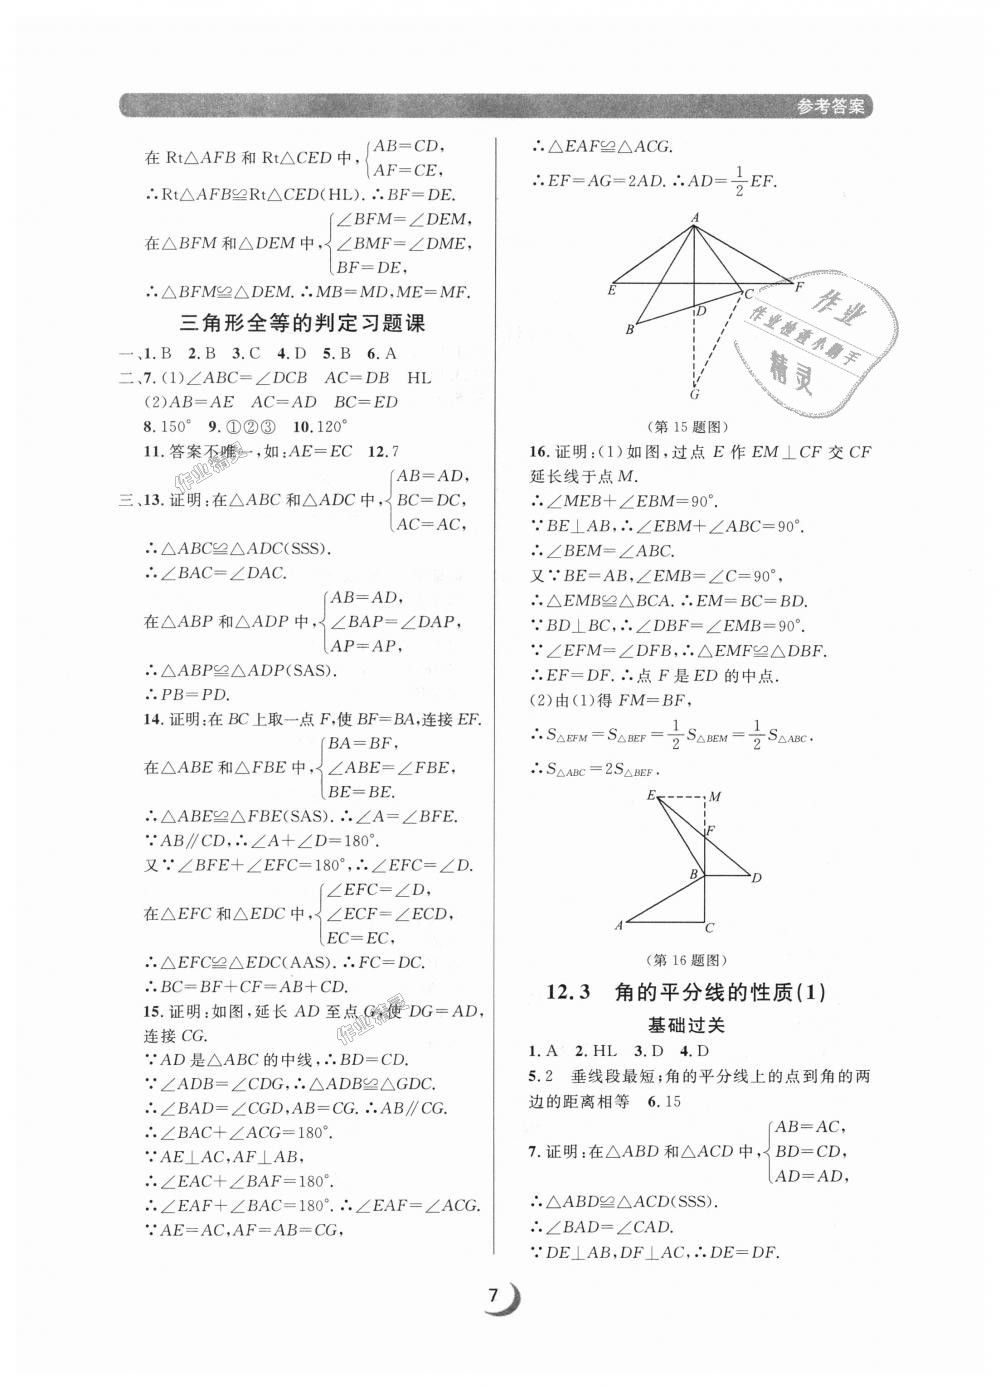 参考答案
在 Rt△AFB 和 Rt△CED 中,{AB=CD,
AF=CE,
∴Rt△AFB≌Rt△CED(HL).∴BF=DE.
在△BFM 和△DEM 中,{∠BFM=∠DEM,
∠BMF=∠DME,
BF=DE,
∴△BFM≌△DEM.∴MB=MD,ME=MF.
三角形全等的判定习题课
一、1. B 2. B 3. C 4. D 5. B 6. A
二、7. (1)∠ABC=∠DCB AC=DB HL
(2)AB=AE AC=AD BC=ED
8. 150° 9. ①②③ 10. 120°
11. 答案不唯一,如:AE=EC 12. 7
三、13. 证明:在△ABC 和△ADC 中,{AB=AD,
BC=DC,
AC=AC,
∴△ABC≌△ADC(SSS).
∴∠BAC=∠DAC.
在△ABP 和△ADP 中,{AB=AD,
∠BAP=∠DAP,
AP=AP,
∴△ABP≌△ADP(SAS).
∴PB=PD.
14. 证明:在 BC 上取一点 F,使 BF=BA,连接 EF.
在△ABE 和△FBE 中,{BA=BF,
∠ABE=∠FBE,
BE=BE.
∴△ABE≌△FBE(SAS).∴∠A=∠BFE.
∵AB∥CD,∴∠A+∠D=180°.
又∵∠BFE+∠EFC=180°,∴∠EFC=∠D.
在△EFC 和△EDC 中,{∠EFC=∠D,
∠ECF=∠ECD,
EC=EC,
∴△EFC≌△EDC(AAS).∴FC=DC.
∴BC=BF+CF=AB+CD.
15. 证明:如图,延长 AD 至点 G,使 DG=AD,
连接 CG.
∵AD 是△ABC 的中线,∴BD=CD.
∵∠ADB=∠CDG,∴△ADB≌△GDC.
∴∠BAD=∠CGD,AB=CG.∴AB∥CG.
∴∠BAC+∠ACG=180°.
∵AE⊥AC,AF⊥AB,
∴∠EAC+∠BAF=180°.
∴∠EAF+∠BAC=180°.∴∠EAF=∠ACG.
∵AE=AC,AF=AB=CG,
∴△EAF≌△ACG.
∴EF=AG=2AD.∴AD=1/2EF.
A
E
C
F
D
B
G
(第 15 题图)
16. 证明:(1)如图,过点 E 作 EM⊥CF 交 CF
延长线于点 M.
∴∠MEB+∠EBM=90°.
∵BE⊥AB,∴∠EBM+∠ABC=90°.
∴∠BEM=∠ABC.
又∵BE=AB,∠EMB=∠C=90°,
∴△EMB≌△BCA.∴EM=BC=BD.
∵BD⊥BC,∴∠DBF=∠EMB=90°.
∵∠EFM=∠DFB,∴△EMF≌△DBF.
∴EF=DF.∴点 F 是 ED 的中点.
(2)由(1)得 FM=BF,
∴S△EFM=S△BEF=1/2S△BEM=1/2S△ABC.
∴S△ABC=2S△BEF.
E
M
F
B
D
A
C
(第 16 题图)
12.3 角的平分线的性质(1)
基础过关
1. A 2. HL 3. D 4. D
5. 2 垂线段最短;角的平分线上的点到角的两
边的距离相等 6. 15
7. 证明:在△ABD 和△ACD 中,{AB=AC,
BD=CD,
AD=AD,
∴△ABD≌△ACD(SSS).
∴∠BAD=∠CAD.
∵DE⊥AB,DF⊥AC,∴DE=DF.
7
作业
作业检查小助手
精灵
作业精灵
作业精灵